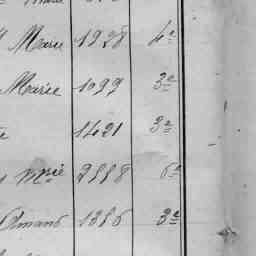 Marie 1928 4e
Marie 1099 3e
1421 3e
Mie 2888 6e
Amans 1386 3e